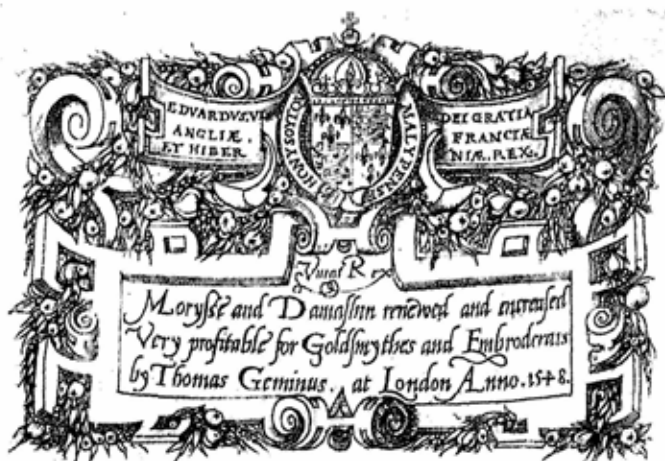 EDVARDVS.VI
ANGLIÆ.
ET HIBER
HONY SOIT QVI
MAL Y PENS
DEI GRATIA
FRANCIÆ
NIÆ. REX.
Vivat Rex
Morysse and Damashin renewed and encreased
Very profitable for Goldsmythes and Embroderars
by Thomas Geminus. at London Anno. 1548.